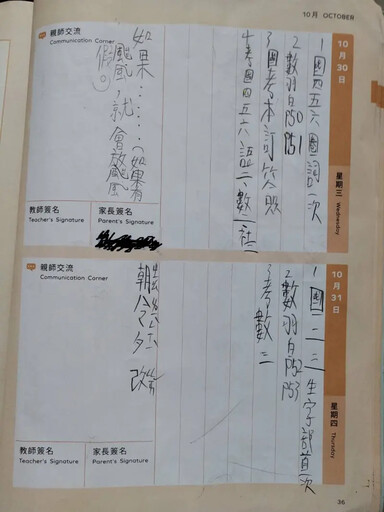 10月 OCTOBER
10月30日
星期三 Wednesday
1國四五六圈詞一次
2數習自P50 P51
3國考本訂簽收
4考國四五六語二、數、社二
親師交流
Communication Corner
如果……(如果有颱風,就會放颱風假。)
教師簽名
Teacher's Signature
家長簽名
Parent's Signature
10月31日
星期四 Thursday
1國一二三生字部首一次
2數習自P52 P53
3考數二
親師交流
Communication Corner
教師簽名
Teacher's Signature
家長簽名
Parent's Signature
36